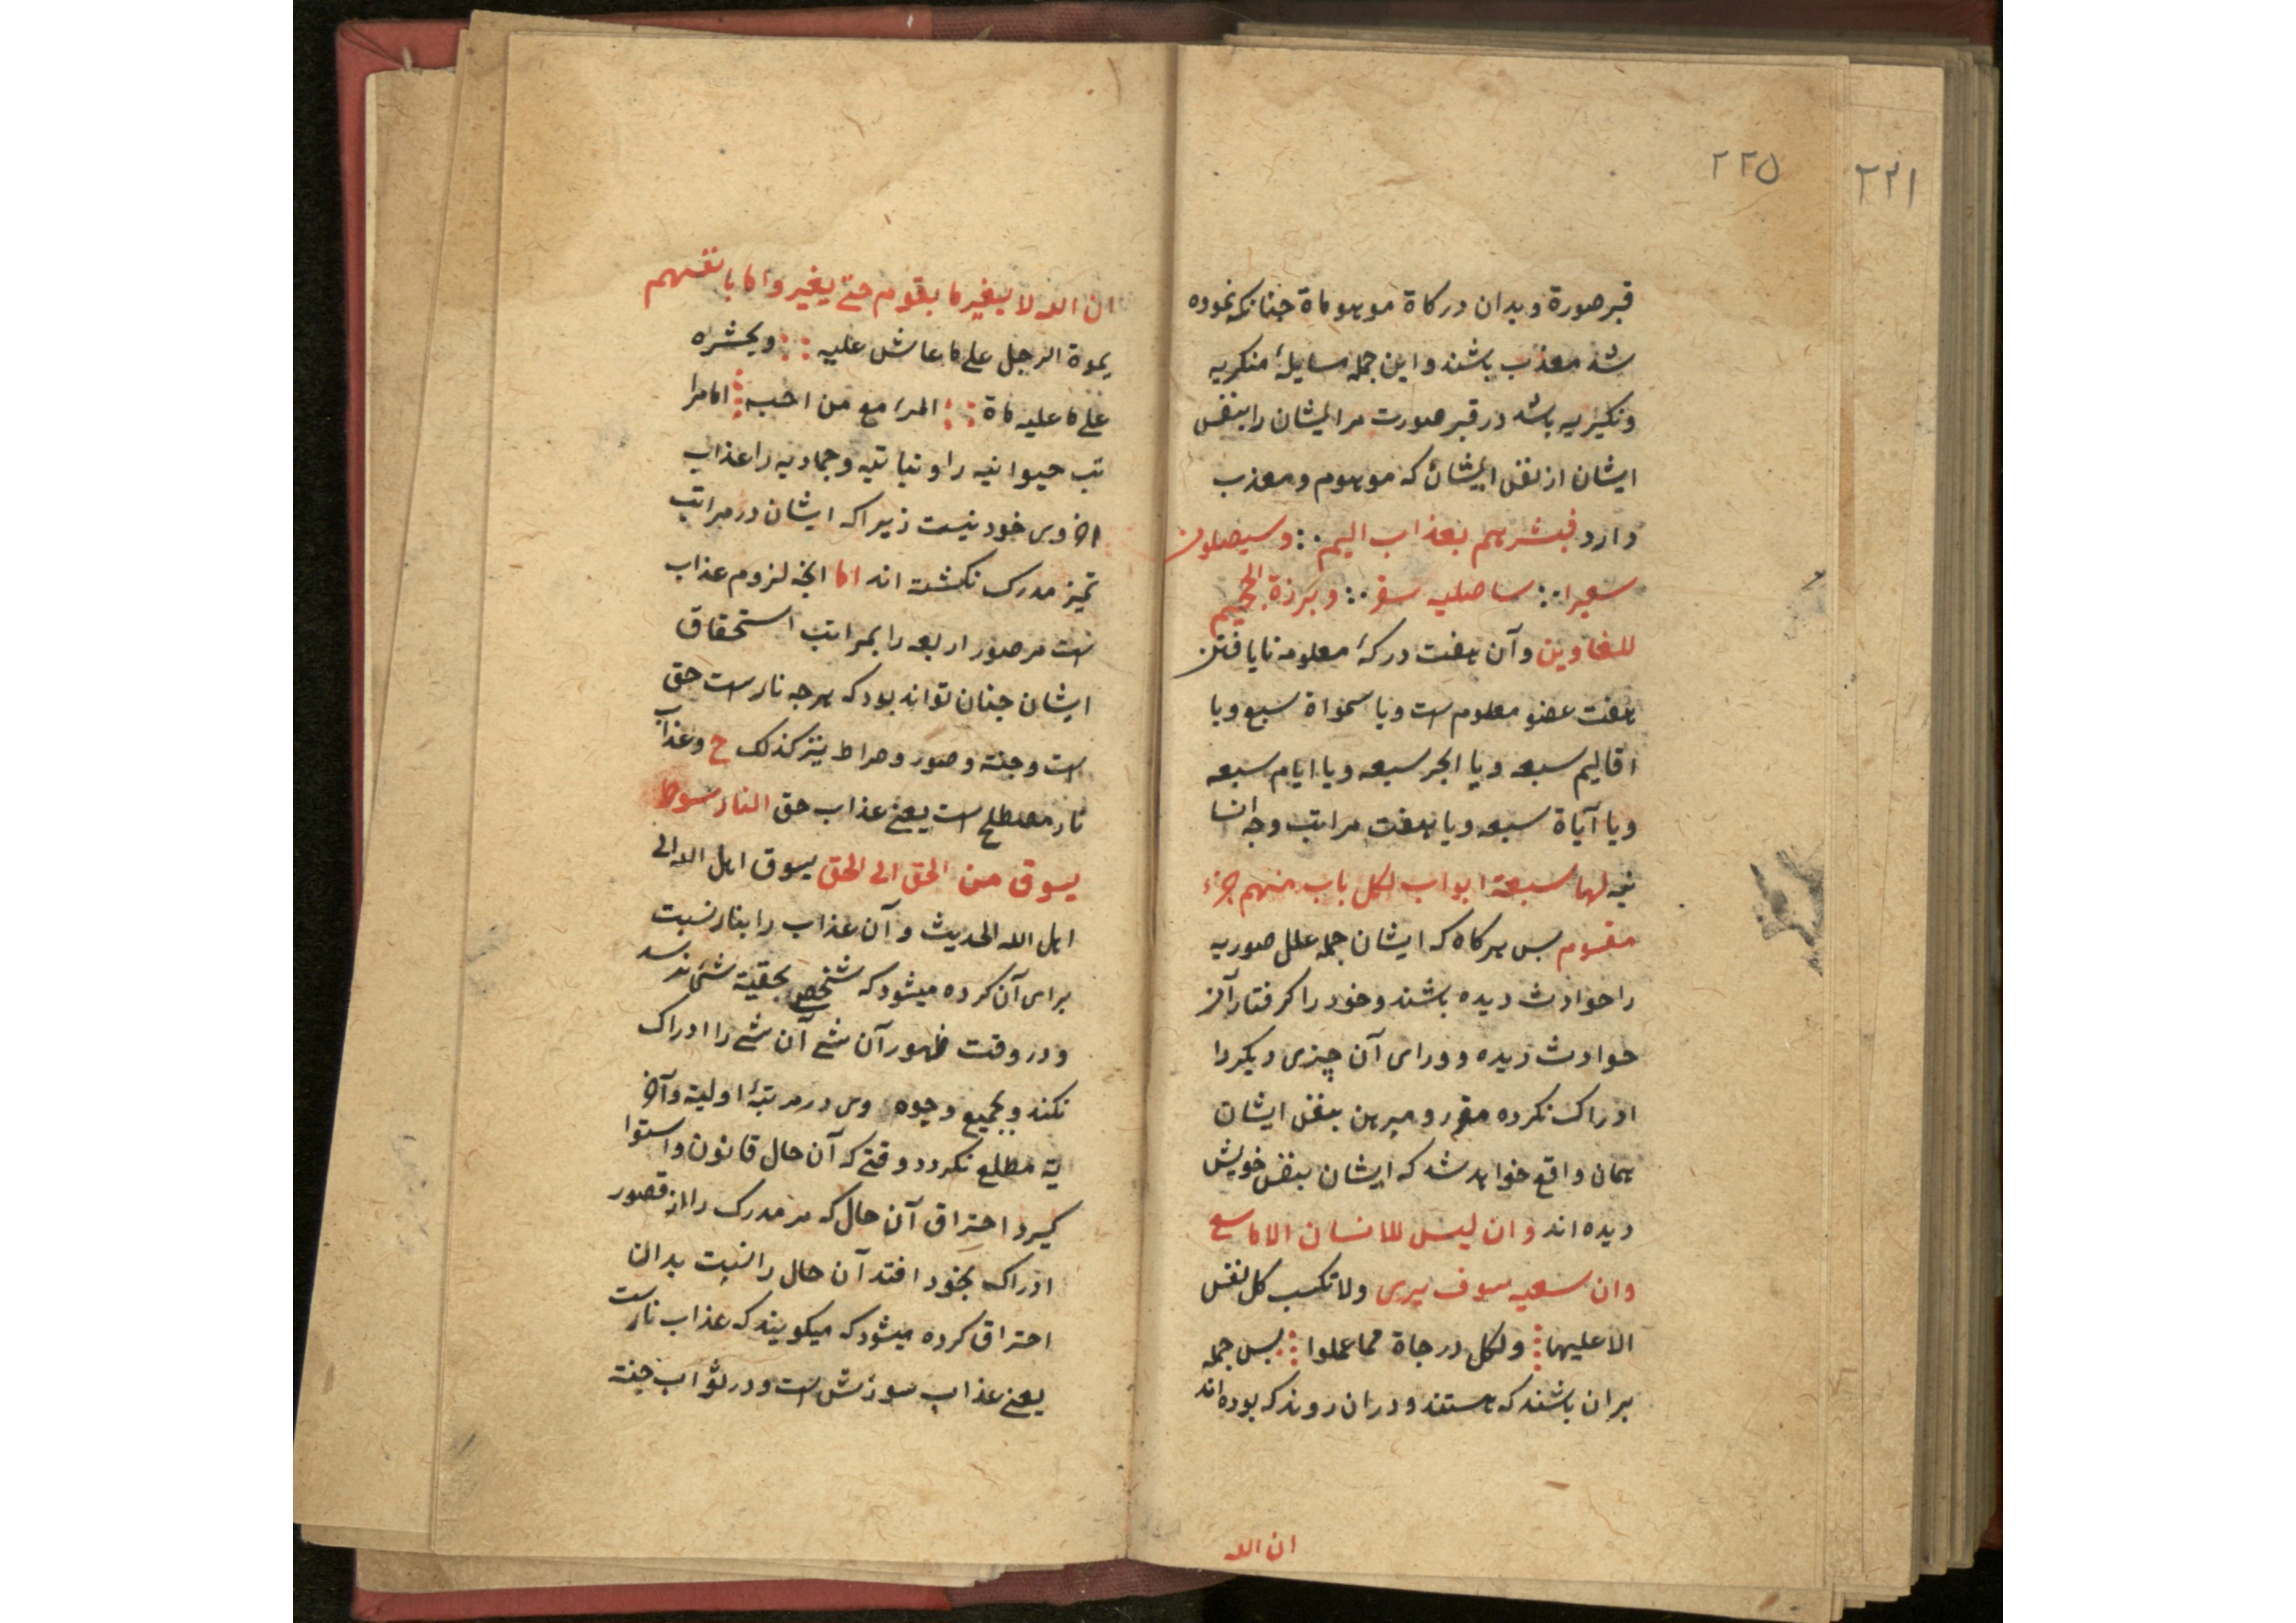 ۲۲۱
۲۲۵
قبر صورة وبدان درکاة موهوماة جنانکه نموده
شد معذب باشند واین جمله مسایلهٔ منکریه
ونکیریه باشد در قبر صورت مر ایشان را بنفس
ایشان از نفس ایشان که موهوم ومعذب
دارد فبشرهم بعذاب الیم وسیصلون
سعیرا ساصلیه سقر وبرزة الجحیم
للغاوین وآن هفت درکهٔ معلومه نایافتن
هفت عضو معلوم است ویا سمواة سبع ویا
اقالیم سبعه ویا ابحر سبعه ویا ایام سبعه
ویا آیاة سبعه ویا هفت مراتب وجه انسا
نیه لها سبعة ابواب لکل باب منهم جزء
مقسوم بس هرکاه که ایشان جمله علل صوریه
را حوادث دیده باشند وخود را کرفتار آن
حوادث دیده وورای آن چیزی دیکر را
ادراک نکرده مقرر ومبرهن بنفس ایشان
همان واقع خواهد شد که ایشان بنفس خویش
دیده اند وان لیس للانسان الا ما سعی
وان سعیه سوف یری ولا تکسب کل نفس
الا علیها ولکل درجاة مما عملوا بس جمله
بران باشند که هستند ودران روند که بوده اند
ان الله
ان الله لا یغیر ما بقوم حتی یغیروا ما بانفسهم
یموة الرجل علی ما عاش علیه ویحشره
علی ما علیه ماة المرء مع من احبه اما مرا
تب حیوانیه را ونباتیه وجمادیه را عذاب
اخروی خود نیست زیرا که ایشان در مراتب
تمیز مدرک نکشته اند اما انجه لزوم عذاب
است مر صور اربعه را بمراتب استحقاق
ایشان جنان تواند بود که هرجه نار است حق
است وجنة وصور وصراط نیز کذلک ح وعذاب
نار مصطلح است یعنی عذاب حق النار سوط
یسوق من الحق الی الحق یسوق اهل الله الی
اهل الله الحدیث وآن عذاب را بنار نسبت
برای آن کرده میشود که شخص بحقیة شیء نرسد
ودر وقت ظهور آن شیء آن شیء را ادراک
نکند وبجمیع وجوه وی در مرتبهٔ اولیة وآخر
یة مطلع نکردد وقتی که آن حال قانون واستوا
کیرد احتراق آن حال که مر مدرک را از قصور
ادراک بخود افتد آن حال را نسبت بدان
احتراق کرده میشود که میکویند که عذاب نار است
یعنی عذاب سوزش است ودر ثواب جنة